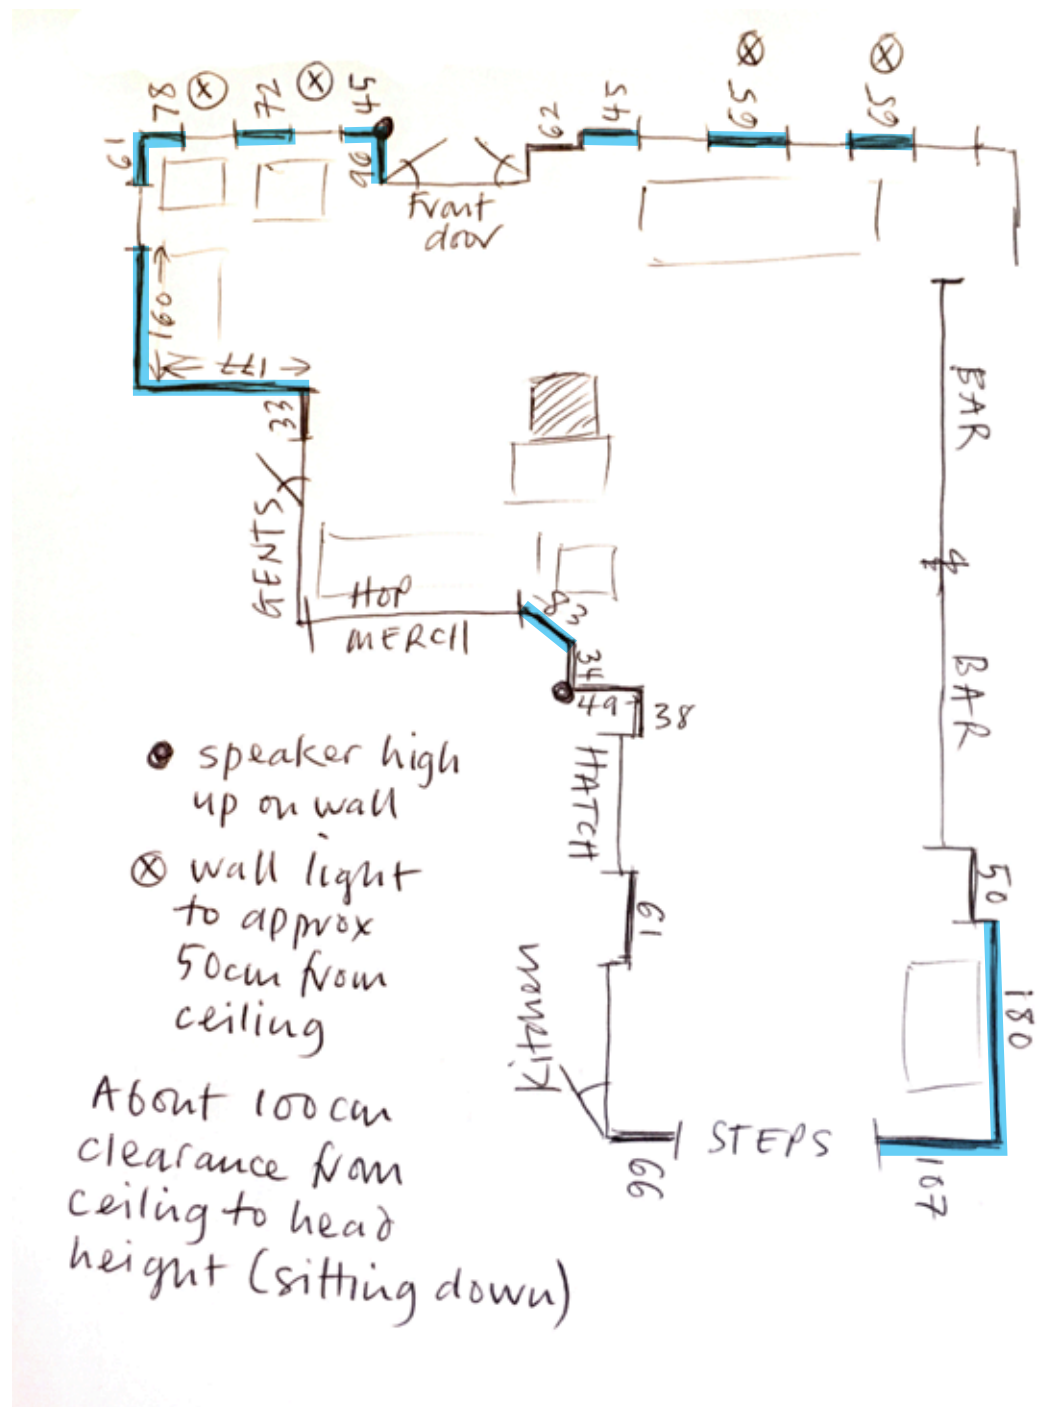 78
72
45
61
96
62
45
65
59
Front
door
160
177
33
GENTS
HOP
MERCH
83
34
49
38
HATCH
61
Kitchen
66
STEPS
BAR
BAR
50
180
107
speaker high
up on wall
wall light
to approx
50cm from
ceiling
About 100cm
clearance from
ceiling to head
height (sitting down)